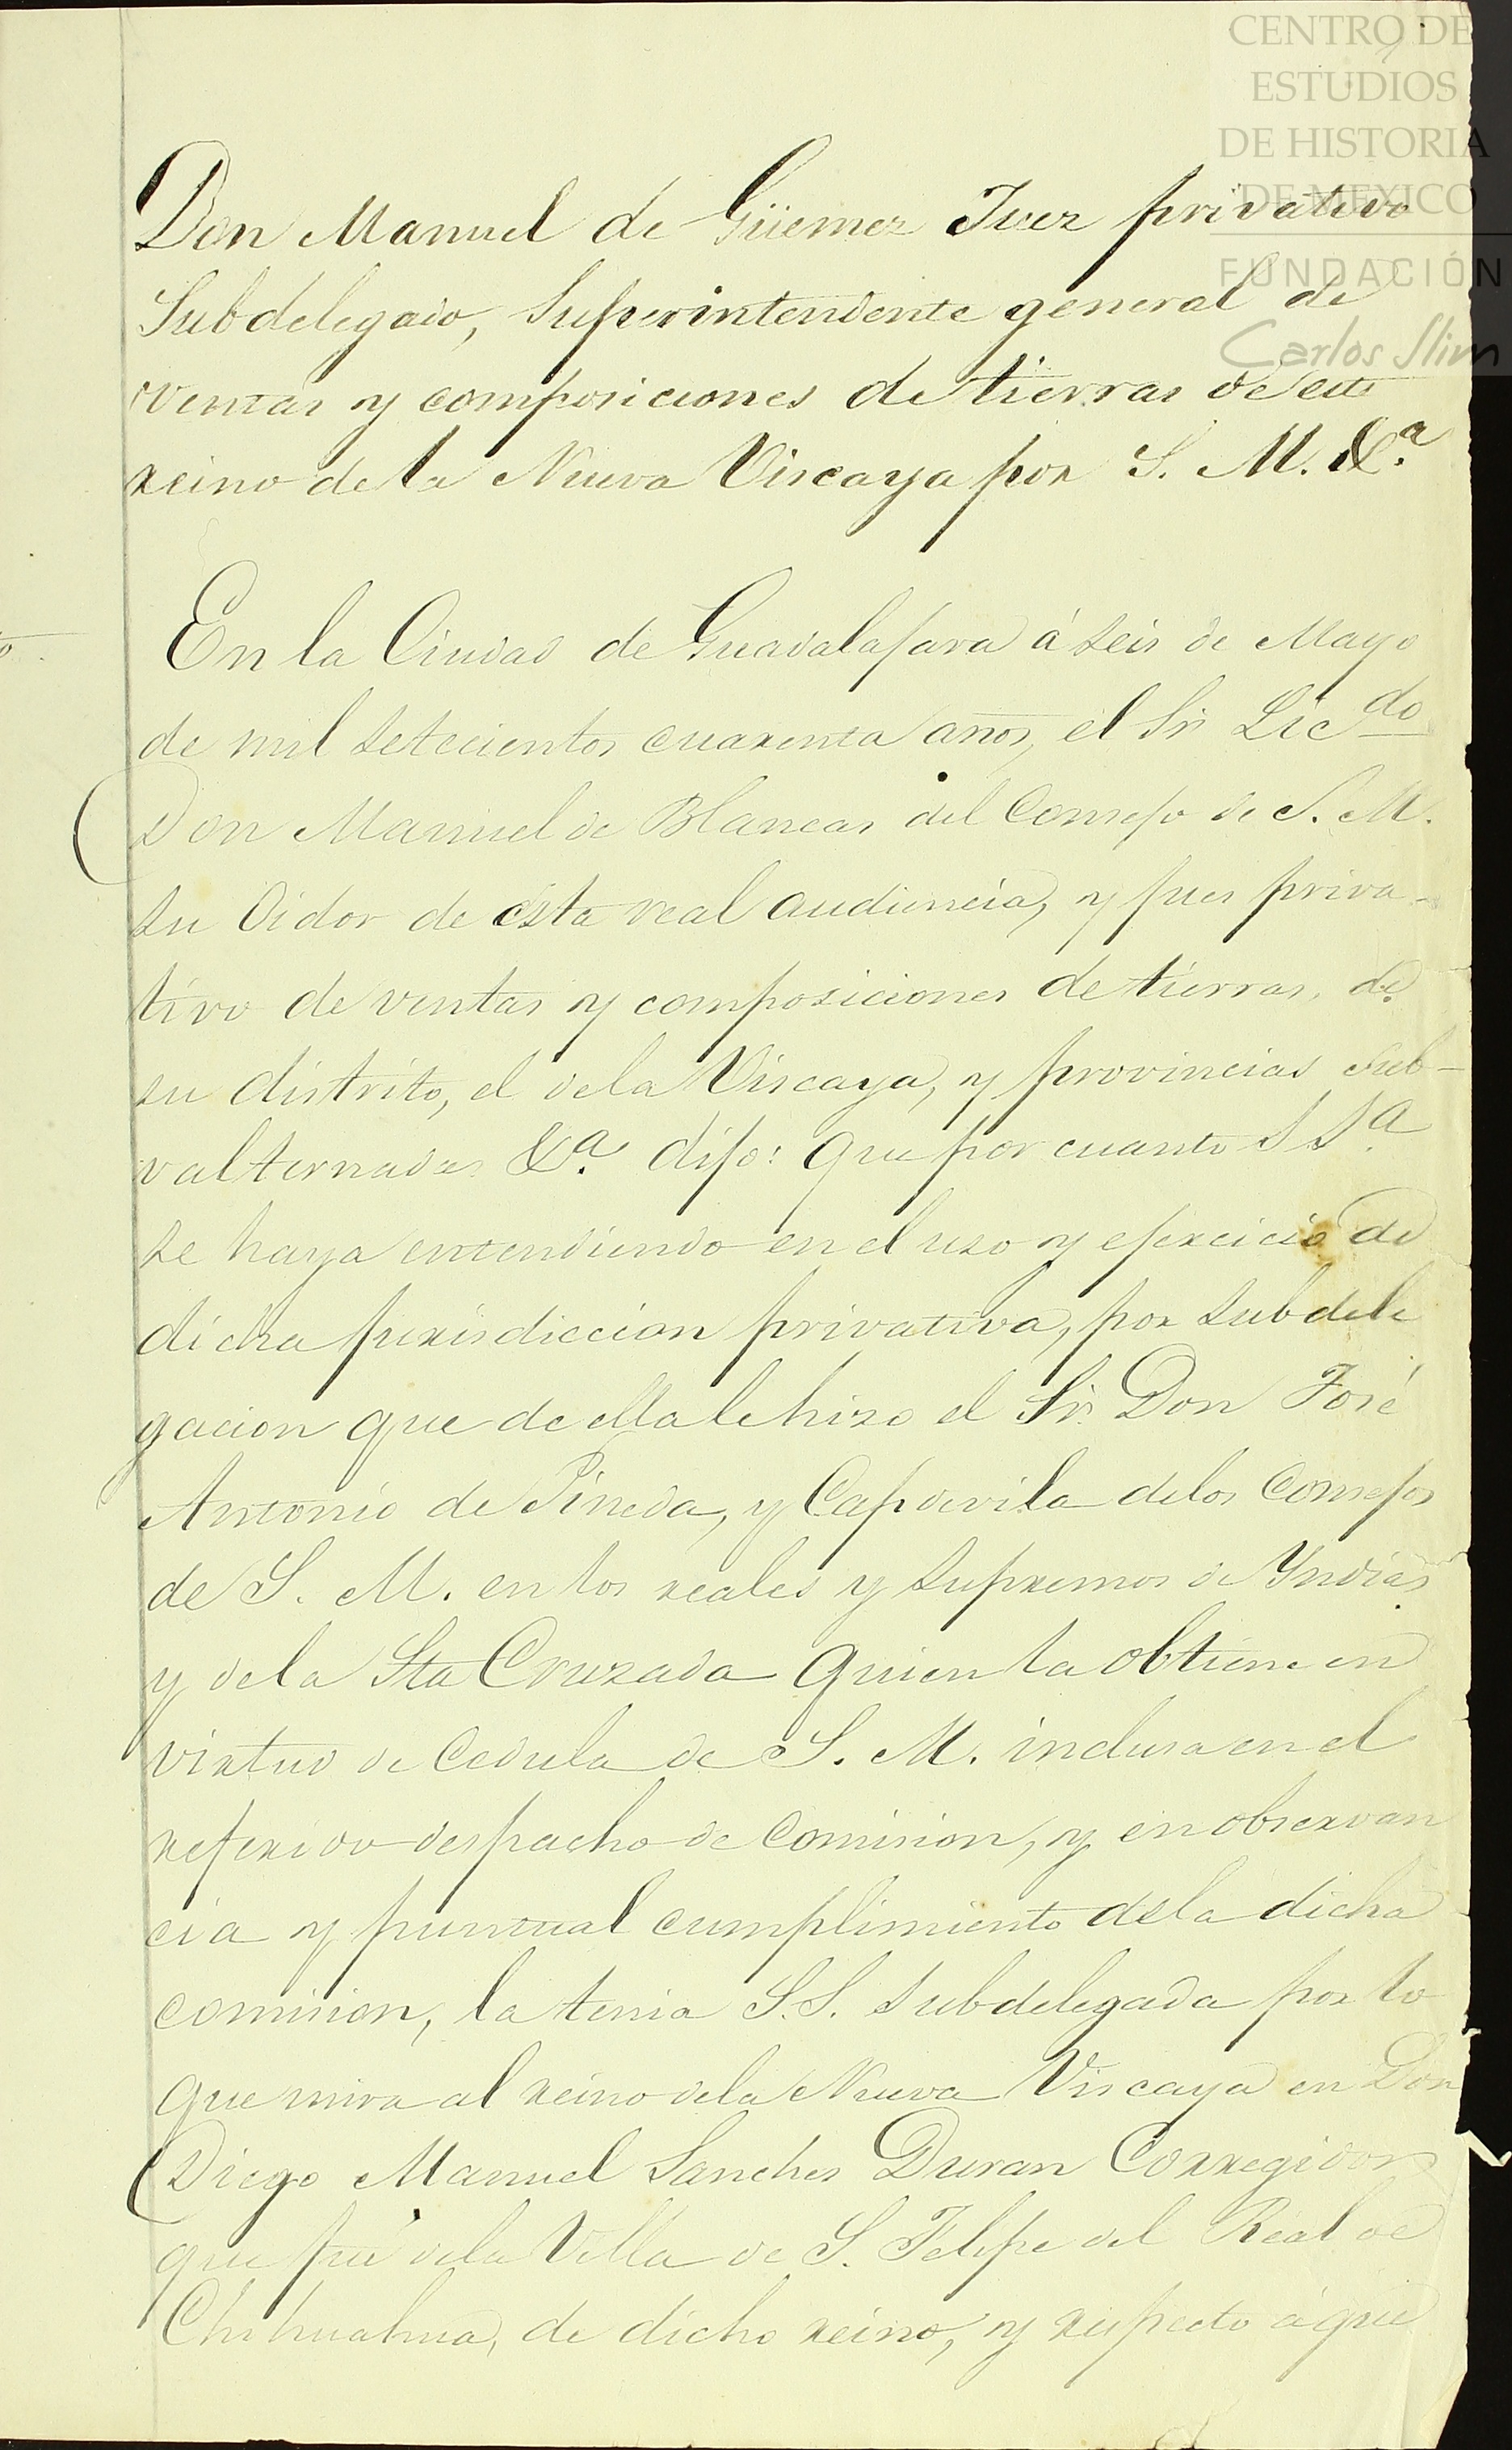 CENTRO DE
ESTUDIOS
DE HISTORIA
DE MÉXICO
FUNDACIÓN
Carlos Slim
Don Manuel de Güemez Juez privativo
Subdelegado, Superintendente general de
ventas y composiciones de tierras de este
reino de la Nueva Viscaya por S. M. &.a
En la Ciudad de Guadalajara á seis de Mayo
de mil setecientos cuarenta años, el Sr Licdo
Don Manuel de Blancas del Consejo de S. M.
su Oidor de esta real audiencia, y juez priva-
tivo de ventas y composiciones de tierras, de
su distrito, el dela Viscaya, y provincias sub-
valternadas &.a dijo: que por cuanto S S.a
se haya entendiendo en el uso y ejercicio de
dicha jurisdiccion privativa, por subdele
gacion que de ella le hizo el Sr. Don José
Antonio de Pineda, y Capdevila delos Consejos
de S. M. en los reales y supremos de Yndias
y dela Sta Cruzada quien la obtiene en
virtud de Cedula de S. M. inclusa en el
referido despacho de Comision, y en observan
cia y puntual cumplimiento dela dicha
comision, la tenia S.S. subdelegada por lo
que mira al reino dela Nueva Viscaya en Don
Diego Manuel Sanches Duran Corregidor
que fué dela Villa de S. Felipe del Real de
Chihuahua, de dicho reino, y respecto á que